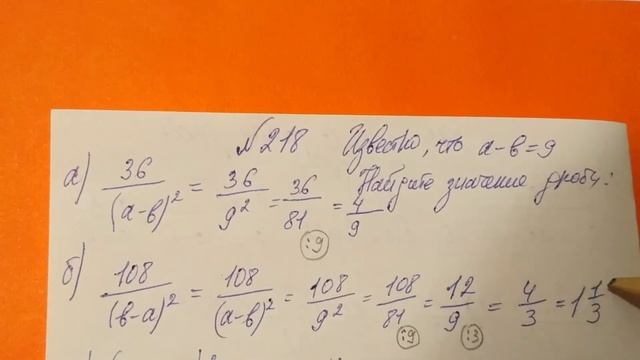 №218 Известно, что a-b=9
Найдите значение дроби:
а) 36/(a-b)² = 36/9² = 36/81 = 4/9
:9
б) 108/(b-a)² = 108/(a-b)² = 108/9² = 108/81 = 12/9 = 4/3 = 1 1/3
:9 :3